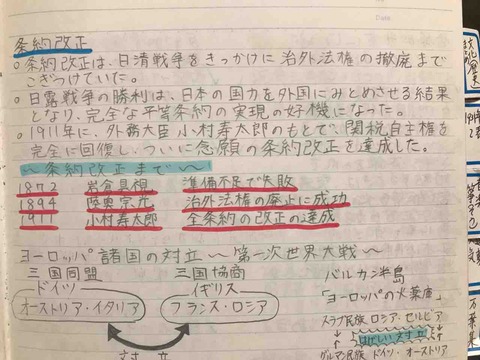 条約改正
○条約改正は、日清戦争をきっかけに治外法権の撤廃まで
こぎつけていた。
○日露戦争の勝利は、日本の国力を外国にみとめさせる結果
となり、完全な平等条約の実現の好機になった。
○1911年に、外務大臣小村寿太郎のもとで、関税自主権を
完全に回復し、ついに念願の条約改正を達成した。
〜条約改正まで〜
1872 岩倉具視 準備不足で失敗
1894 陸奥宗光 治外法権の廃止に成功
1911 小村寿太郎 全条約の改正の達成
ヨーロッパ諸国の対立 〜第一次世界大戦〜
三国同盟 三国協商 バルカン半島
ドイツ イギリス 「ヨーロッパの火薬庫」
オーストリア・イタリア フランス・ロシア スラブ民族 ロシア・セルビア
↑ はげしい対立 ↑
ゲルマン民族 ドイツ・オーストリア
対立